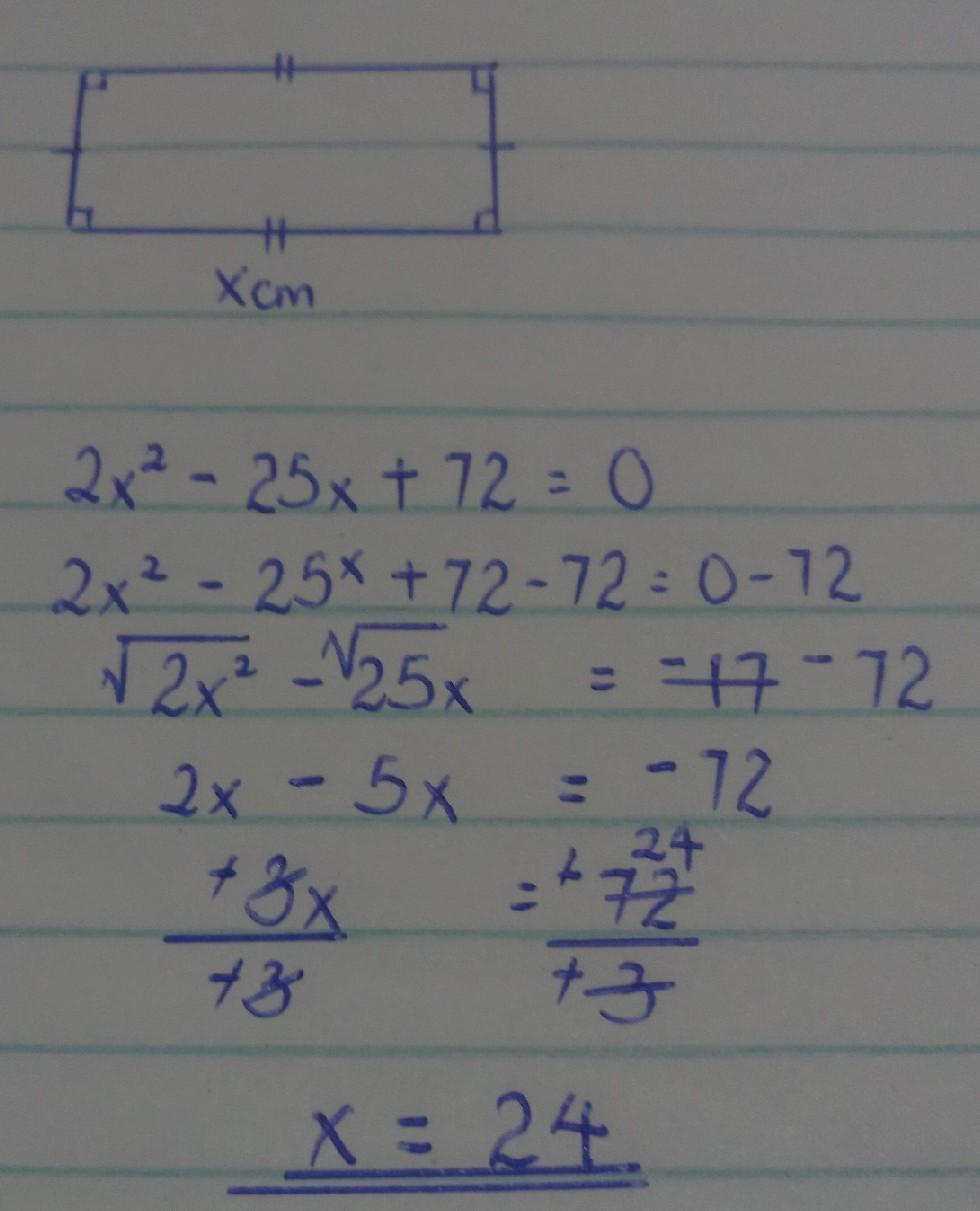 x cm
2x² - 25x + 72 = 0
2x² - 25x + 72 - 72 = 0 - 72
√2x² - √25x = -17 - 72
2x - 5x = -72
+3x = +72 24
+3 +3
x = 24